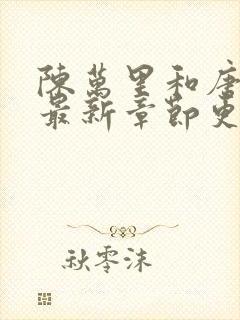 陳萬里和唐
最新章節更
秋零沫